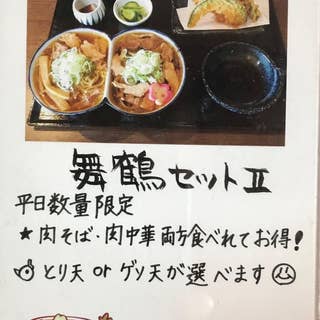 舞鶴セットⅡ
平日数量限定
★肉そば・肉中華両方食べれてお得!
とり天 or ゲソ天が選べます